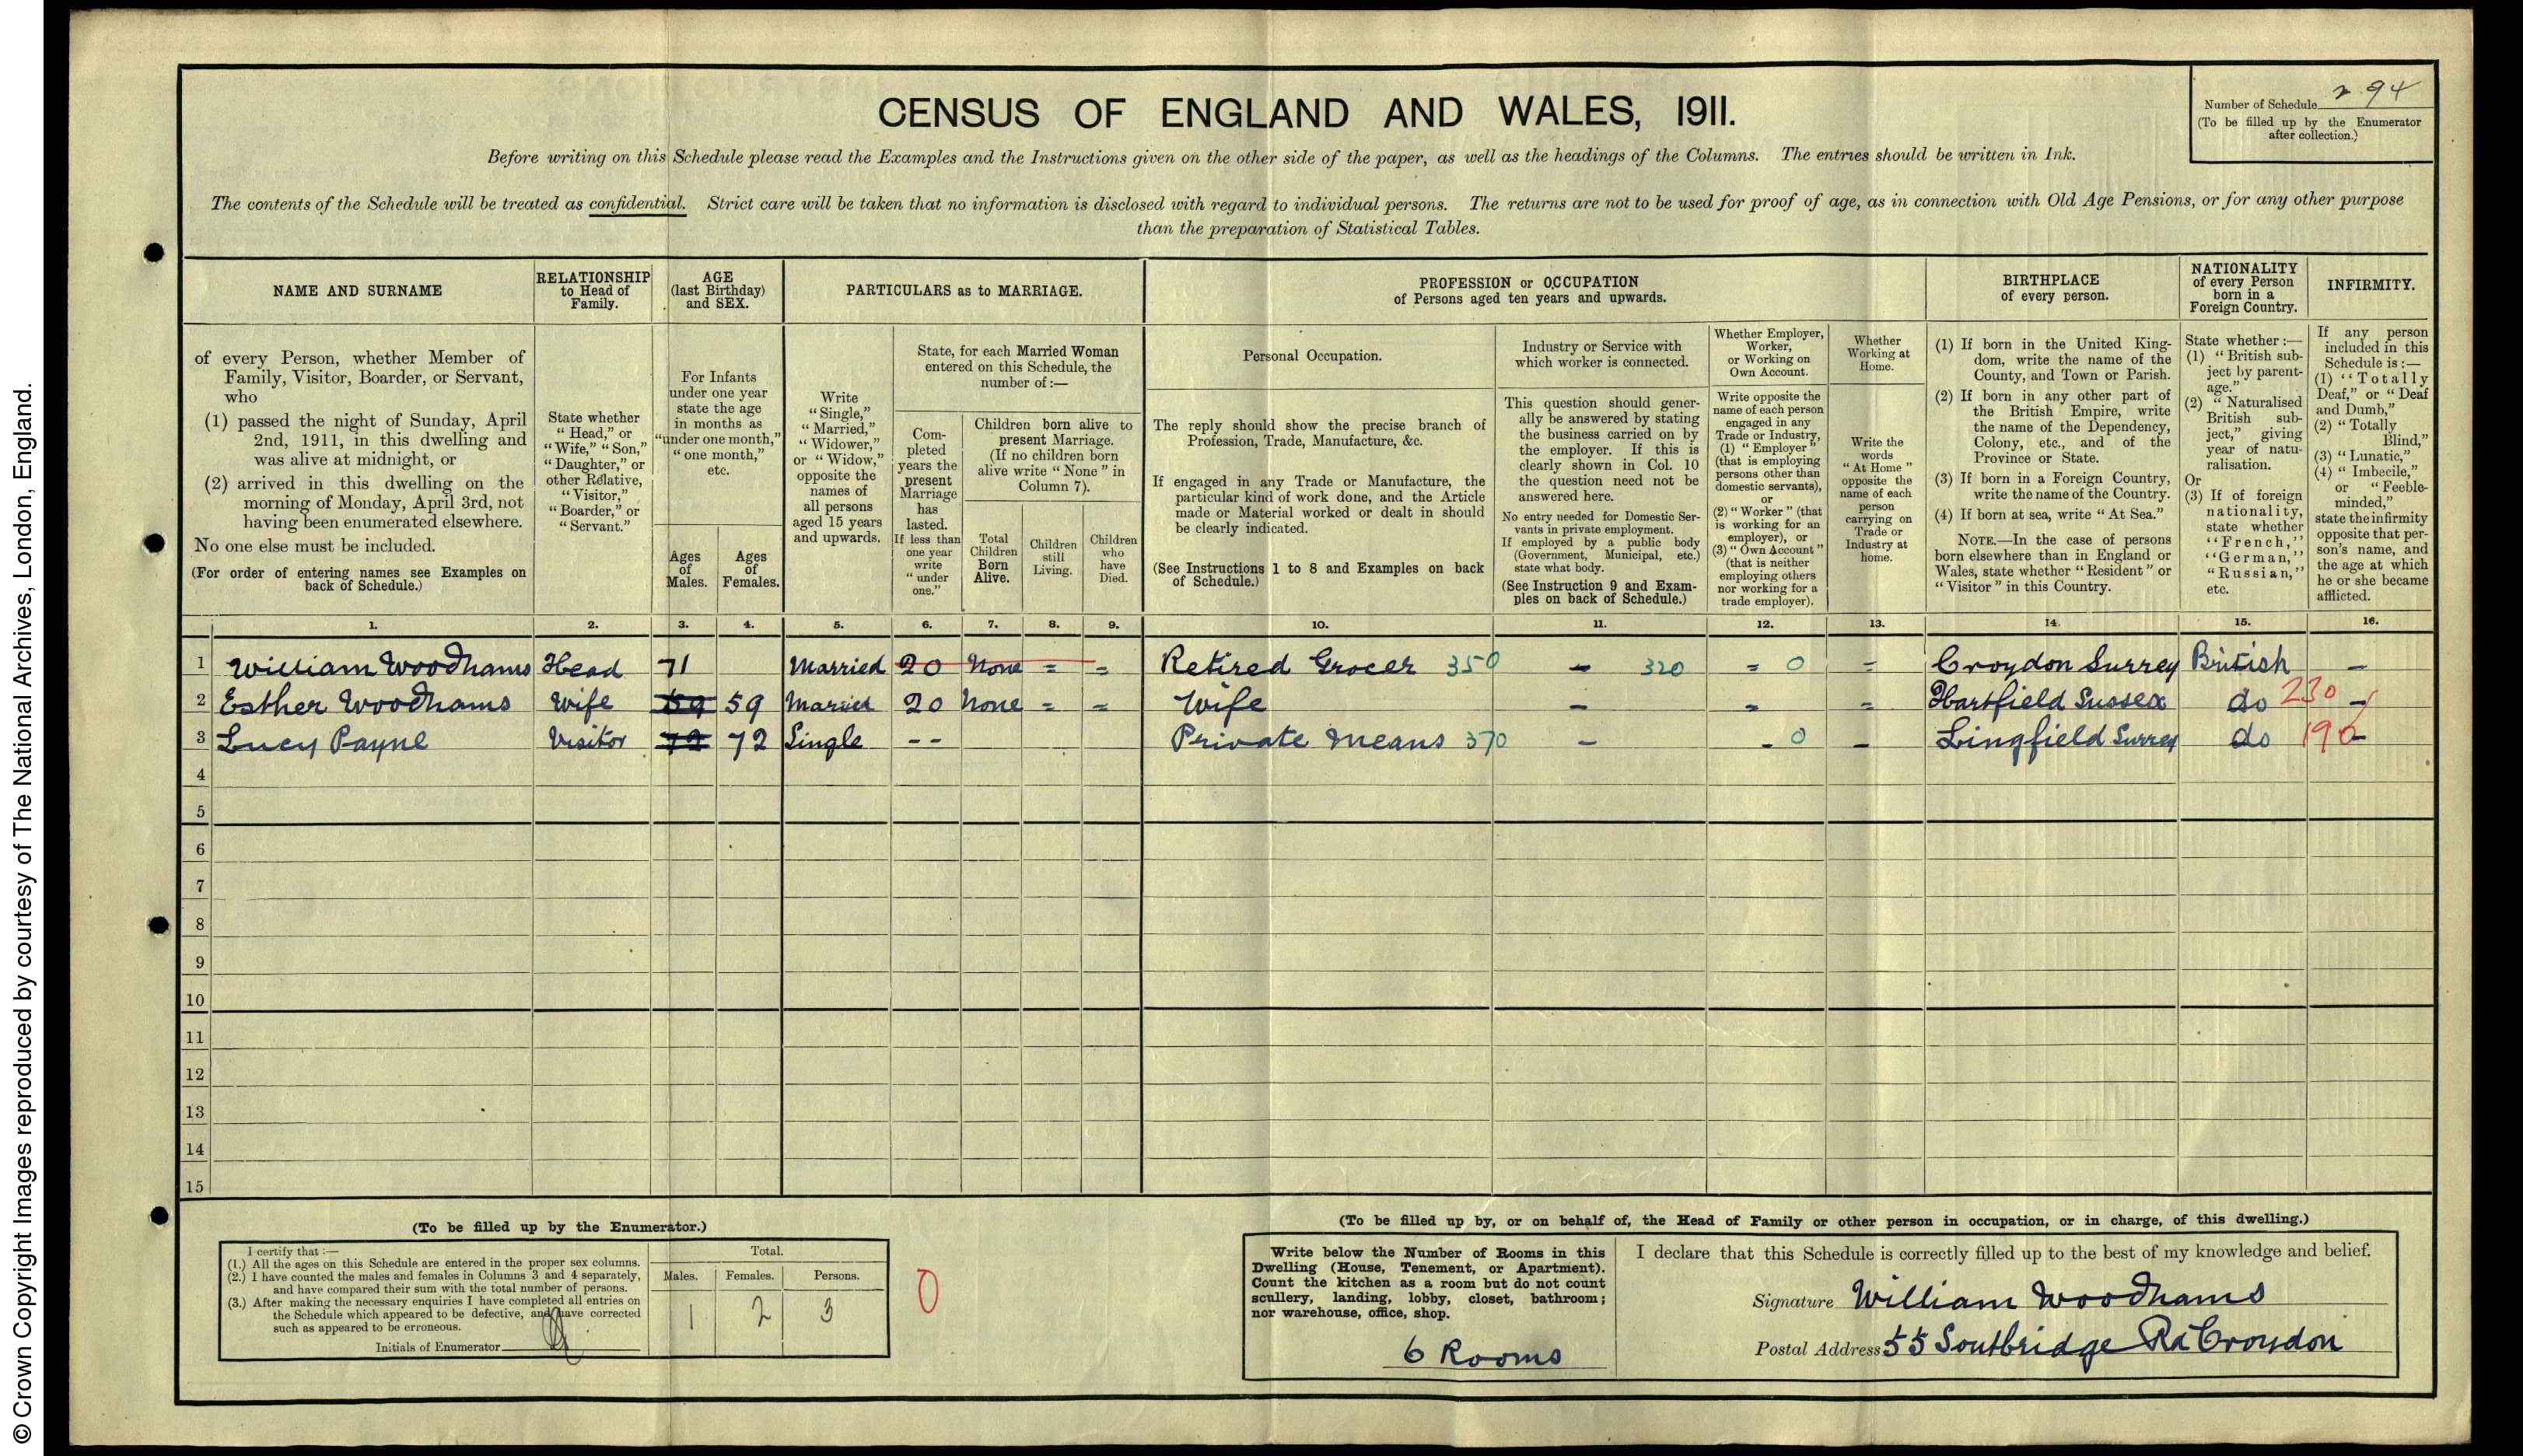 © Crown Copyright Images reproduced by courtesy of The National Archives, London, England.
CENSUS OF ENGLAND AND WALES, 1911.
Number of Schedule 294
(To be filled up by the Enumerator
after collection.)
Before writing on this Schedule please read the Examples and the Instructions given on the other side of the paper, as well as the headings of the Columns. The entries should be written in Ink.
The contents of the Schedule will be treated as confidential. Strict care will be taken that no information is disclosed with regard to individual persons. The returns are not to be used for proof of age, as in connection with Old Age Pensions, or for any other purpose
than the preparation of Statistical Tables.
NAME AND SURNAME
of every Person, whether Member of
Family, Visitor, Boarder, or Servant,
who
(1) passed the night of Sunday, April
2nd, 1911, in this dwelling and
was alive at midnight, or
(2) arrived in this dwelling on the
morning of Monday, April 3rd, not
having been enumerated elsewhere.
No one else must be included.
(For order of entering names see Examples on
back of Schedule.)
RELATIONSHIP
to Head of
Family.
State whether
"Head," or
"Wife," "Son,"
"Daughter," or
other Relative,
"Visitor,"
"Boarder," or
"Servant."
AGE
(last Birthday)
and SEX.
For Infants
under one year
state the age
in months as
"under one month,"
"one month,"
etc.
Ages
of
Males.
Ages
of
Females.
PARTICULARS as to MARRIAGE.
Write
"Single,"
"Married,"
"Widower,"
or "Widow,"
opposite the
names of
all persons
aged 15 years
and upwards.
State, for each Married Woman
entered on this Schedule, the
number of:—
Com-
pleted
years the
present
Marriage
has
lasted.
If less than
one year
write
"under
one."
Children born alive to
present Marriage.
(If no children born
alive write "None" in
Column 7).
Total
Children
Born
Alive.
Children
still
Living.
Children
who
have
Died.
PROFESSION or OCCUPATION
of Persons aged ten years and upwards.
Personal Occupation.
The reply should show the precise branch of
Profession, Trade, Manufacture, &c.
If engaged in any Trade or Manufacture, the
particular kind of work done, and the Article
made or Material worked or dealt in should
be clearly indicated.
(See Instructions 1 to 8 and Examples on back
of Schedule.)
Industry or Service with
which worker is connected.
This question should gener-
ally be answered by stating
the business carried on by
the employer. If this is
clearly shown in Col. 10
the question need not be
answered here.
No entry needed for Domestic Ser-
vants in private employment.
If employed by a public body
(Government, Municipal, etc.)
state what body.
(See Instruction 9 and Exam-
ples on back of Schedule.)
Whether Employer,
Worker,
or Working on
Own Account.
Write opposite the
name of each person
engaged in any
Trade or Industry,
(1) "Employer"
(that is employing
persons other than
domestic servants),
or
(2) "Worker" (that
is working for an
employer), or
(3) "Own Account"
(that is neither
employing others
nor working for a
trade employer).
Whether
Working at
Home.
Write the
words
"At Home"
opposite the
name of each
person
carrying on
Trade or
Industry at
home.
BIRTHPLACE
of every person.
(1) If born in the United King-
dom, write the name of the
County, and Town or Parish.
(2) If born in any other part of
the British Empire, write
the name of the Dependency,
Colony, etc., and of the
Province or State.
(3) If born in a Foreign Country,
write the name of the Country.
(4) If born at sea, write "At Sea."
NOTE.—In the case of persons
born elsewhere than in England or
Wales, state whether "Resident" or
"Visitor" in this Country.
NATIONALITY
of every Person
born in a
Foreign Country.
State whether:—
(1) "British sub-
ject by parent-
age."
(2) "Naturalised
British sub-
ject," giving
year of natu-
ralisation.
Or
(3) If of foreign
nationality,
state whether
"French,"
"German,"
"Russian,"
etc.
INFIRMITY.
If any person
included in this
Schedule is:—
(1) "Totally
Deaf," or "Deaf
and Dumb,"
(2) "Totally
Blind,"
(3) "Lunatic,"
(4) "Imbecile,"
or "Feeble-
minded,"
state the infirmity
opposite that per-
son's name, and
the age at which
he or she became
afflicted.
1. 2. 3. 4. 5. 6. 7. 8. 9. 10. 11. 12. 13. 14. 15. 16.
1 William Woodhams Head 71 Married 20 None = = Retired Grocer 350 – 320 = 0 = Croydon Surrey British –
2 Esther Woodhams Wife 59 59 Married 20 None = = Wife – = = Hartfield Sussex do 230 –
3 Lucy Payne Visitor 72 72 Single -- Private Means 370 – - 0 – Lingfield Surrey do 190 –
4
5
6
7
8
9
10
11
12
13
14
15
(To be filled up by the Enumerator.)
I certify that:—
(1.) All the ages on this Schedule are entered in the proper sex columns.
(2.) I have counted the males and females in Columns 3 and 4 separately,
and have compared their sum with the total number of persons.
(3.) After making the necessary enquiries I have completed all entries on
the Schedule which appeared to be defective, and have corrected
such as appeared to be erroneous.
Initials of Enumerator
Total.
Males. Females. Persons.
1 2 3
0
(To be filled up by, or on behalf of, the Head of Family or other person in occupation, or in charge, of this dwelling.)
Write below the Number of Rooms in this
Dwelling (House, Tenement, or Apartment).
Count the kitchen as a room but do not count
scullery, landing, lobby, closet, bathroom;
nor warehouse, office, shop.
6 Rooms
I declare that this Schedule is correctly filled up to the best of my knowledge and belief.
Signature William Woodhams
Postal Address 55 Southbridge Rd Croydon